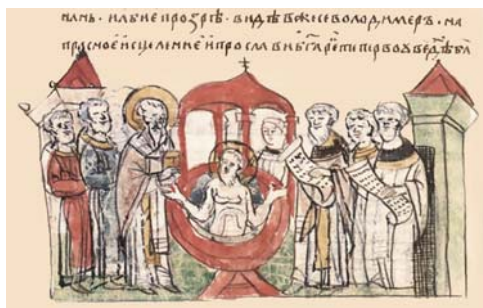 нань · и абие прозрѣ · видѣвъ же се володимеръ · на
прасное исцеление и прослави б҃га ре҃ топервоувед҃ѣ б҃а